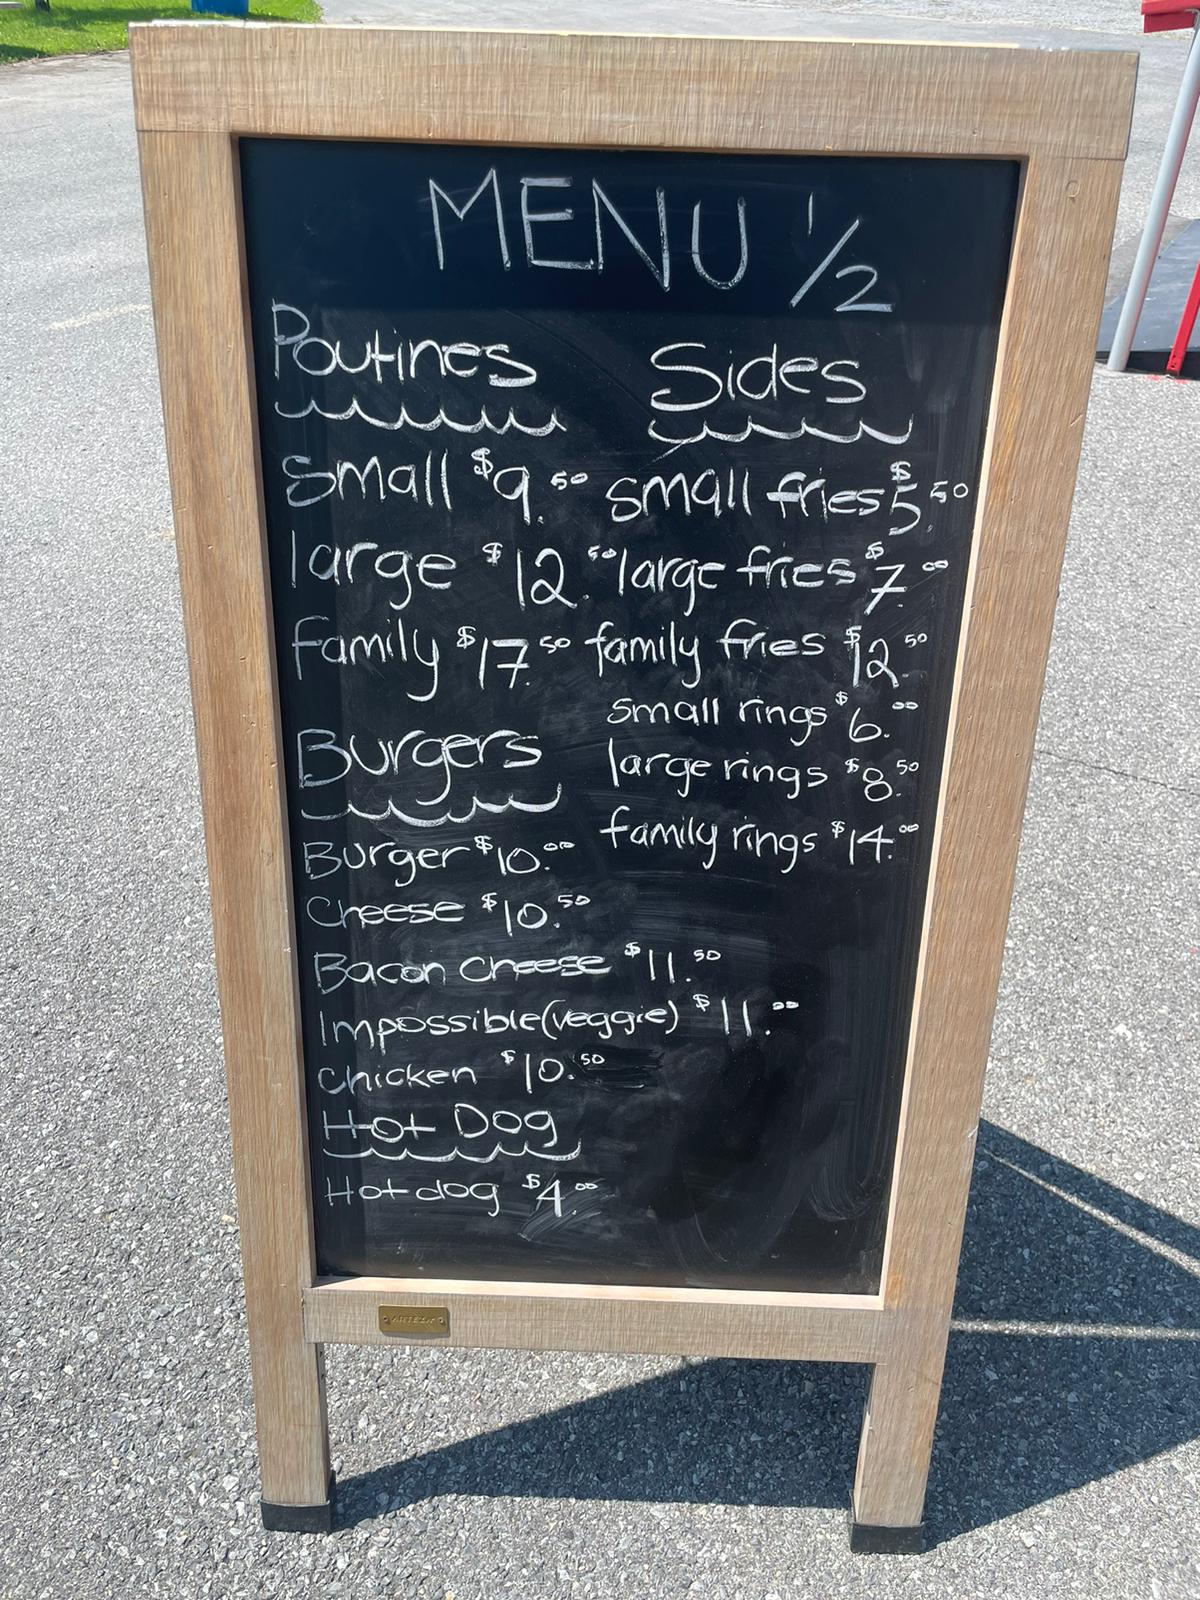 MENU 1/2
Poutines
small $9.50
large $12.50
family $17.50
Burgers
Burger $10.00
Cheese $10.50
Bacon Cheese $11.50
Impossible(veggie) $11.00
Chicken $10.50
Hot Dog
Hot dog $4.00
Sides
small fries $5.50
large fries $7.00
family fries $12.50
small rings $6.00
large rings $8.50
family rings $14.00
ARTEZA